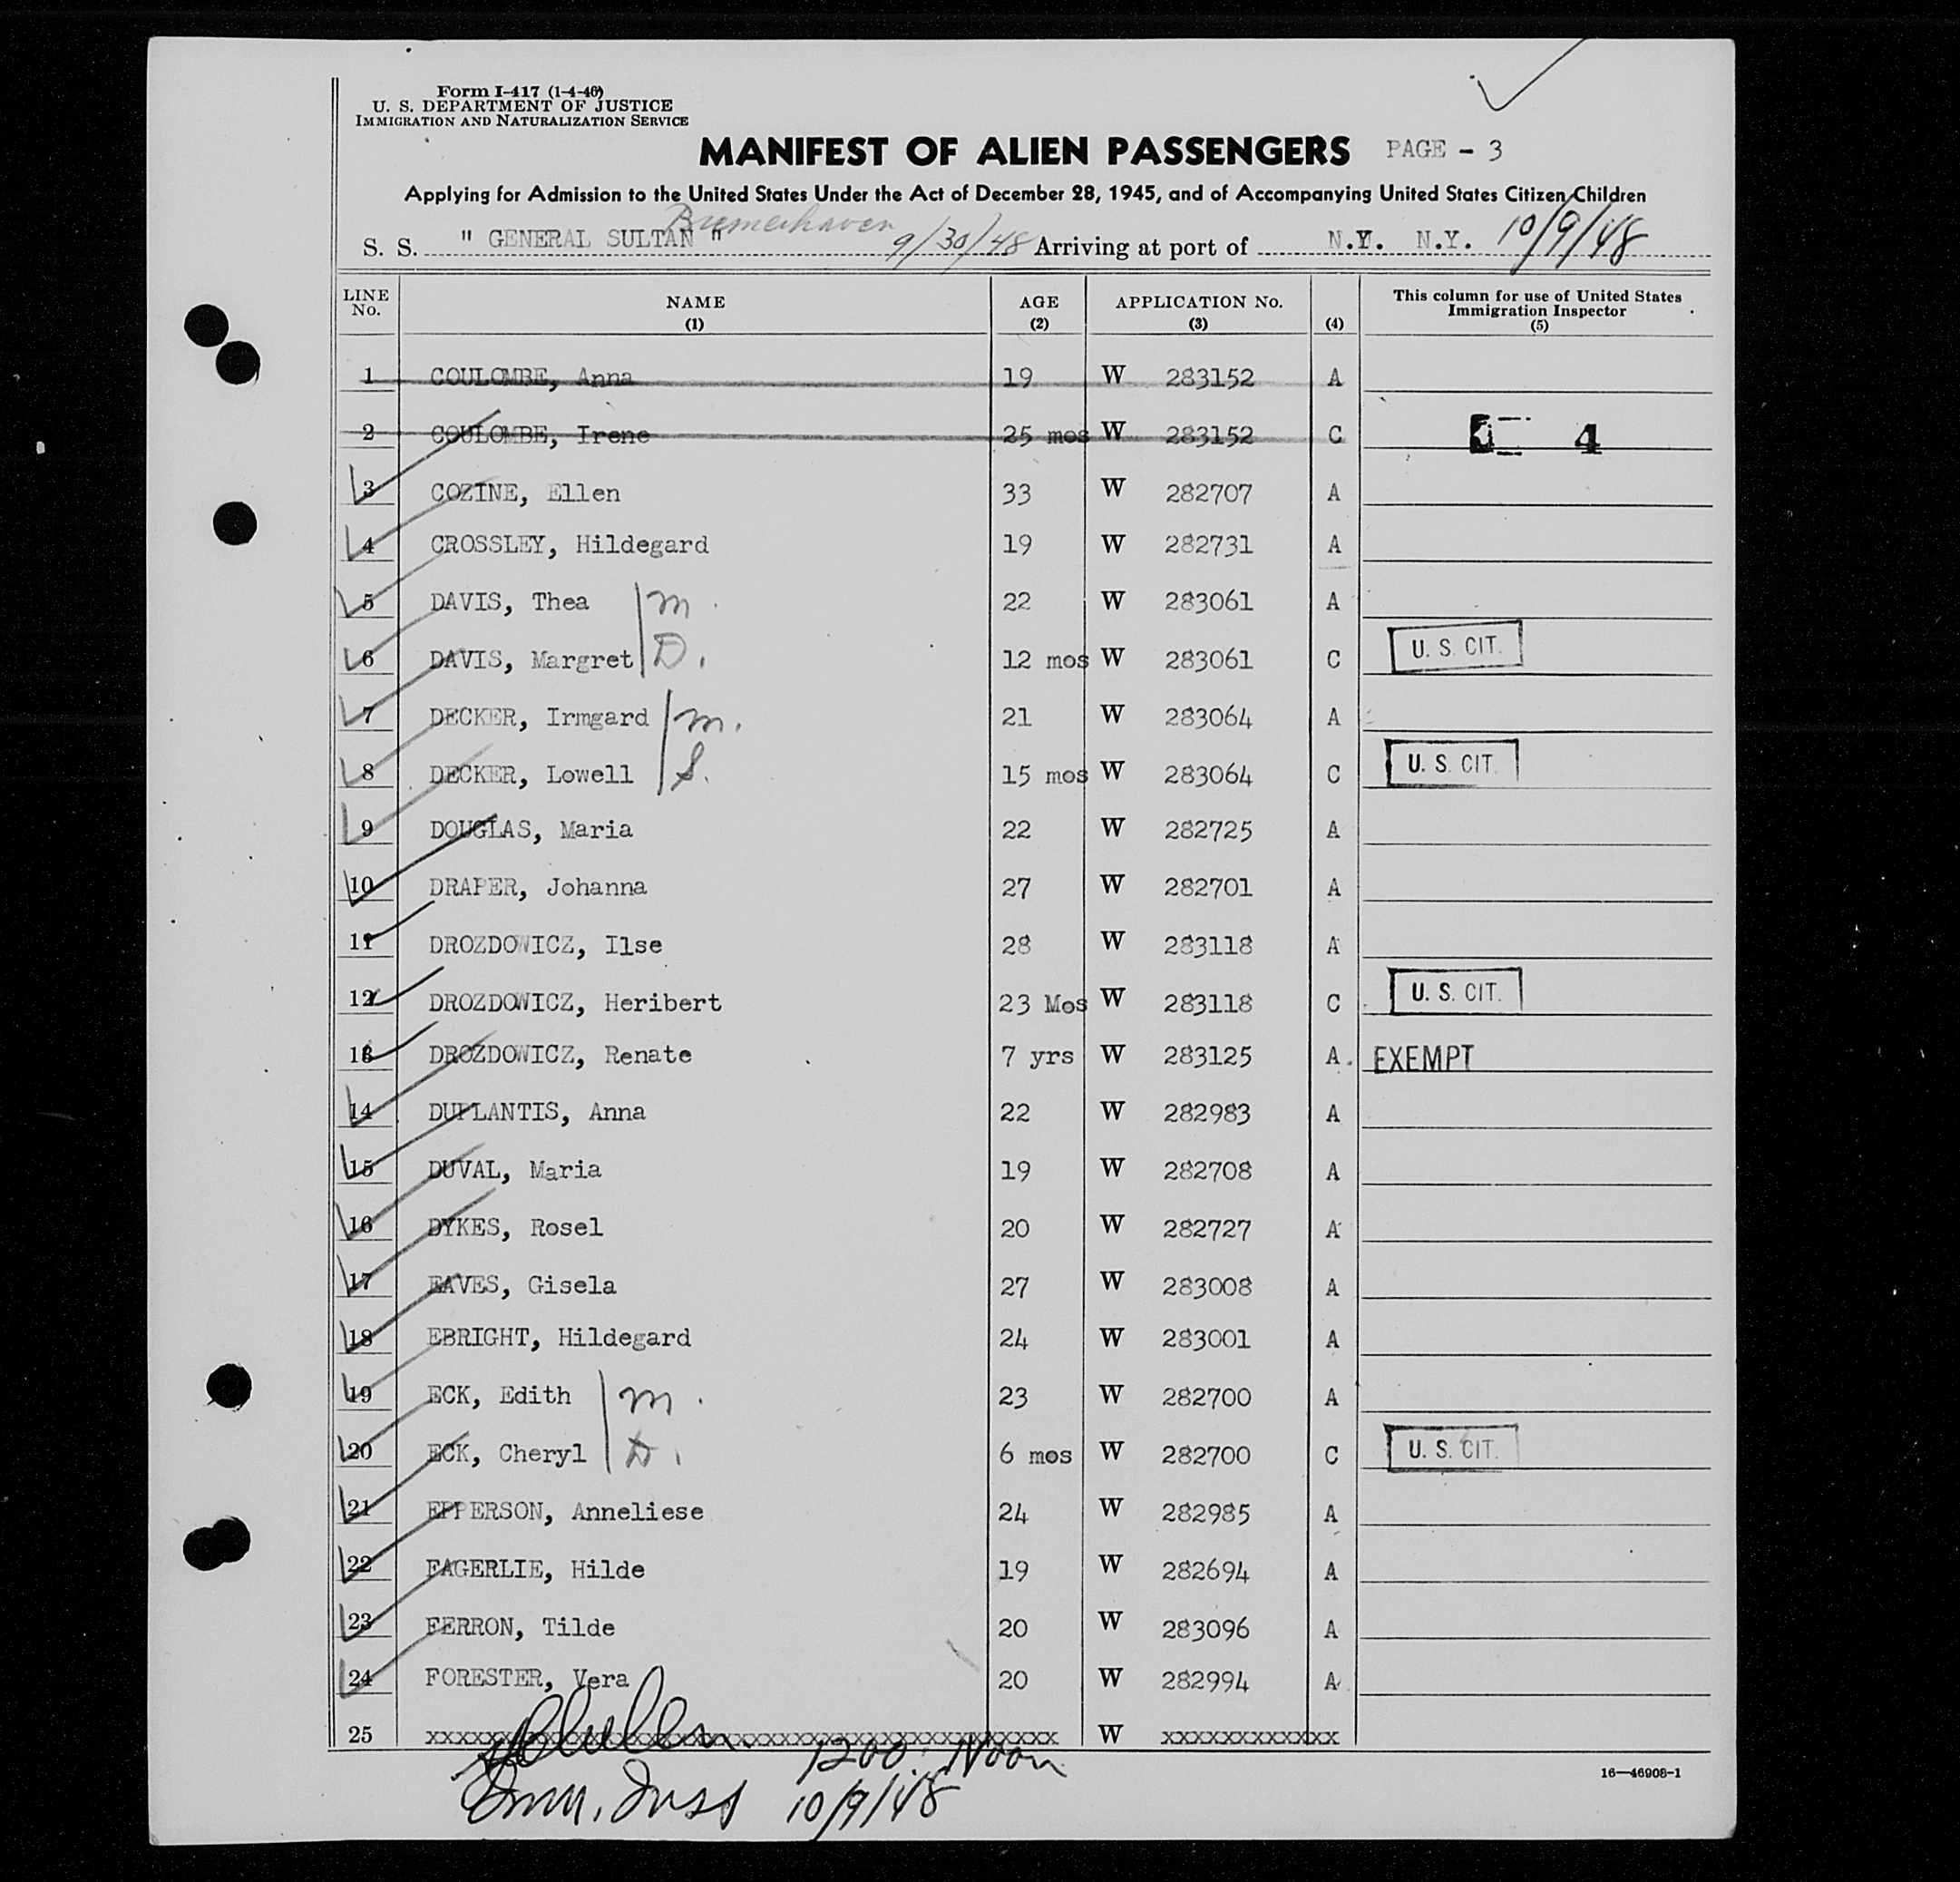 Form I-417 (1-4-46)
U. S. DEPARTMENT OF JUSTICE
IMMIGRATION AND NATURALIZATION SERVICE
MANIFEST OF ALIEN PASSENGERS PAGE - 3
Applying for Admission to the United States Under the Act of December 28, 1945, and of Accompanying United States Citizen Children
Bremerhaven
S. S. " GENERAL SULTAN " 9/30/48 Arriving at port of N.Y. N.Y. 10/9/48
LINE No. NAME (1) AGE (2) APPLICATION No. (3) (4) This column for use of United States Immigration Inspector (5)
1 COULOMBE, Anna 19 W 283152 A
2 COULOMBE, Irene 25 mos W 283152 C 4
3 COZINE, Ellen 33 W 282707 A
4 CROSSLEY, Hildegard 19 W 282731 A
5 DAVIS, Thea m. 22 W 283061 A
6 DAVIS, Margret D. 12 mos W 283061 C U. S. CIT.
7 DECKER, Irmgard m. 21 W 283064 A
8 DECKER, Lowell S. 15 mos W 283064 C U. S. CIT.
9 DOUGLAS, Maria 22 W 282725 A
10 DRAPER, Johanna 27 W 282701 A
11 DROZDOWICZ, Ilse 28 W 283118 A
12 DROZDOWICZ, Heribert 23 Mos W 283118 C U. S. CIT.
13 DROZDOWICZ, Renate 7 yrs W 283125 A. EXEMPT
14 DUPLANTIS, Anna 22 W 282983 A
15 DUVAL, Maria 19 W 282708 A
16 DYKES, Rosel 20 W 282727 A
17 EAVES, Gisela 27 W 283008 A
18 EBRIGHT, Hildegard 24 W 283001 A
19 ECK, Edith m. 23 W 282700 A
20 ECK, Cheryl D. 6 mos W 282700 C U. S. CIT.
21 EPPERSON, Anneliese 24 W 282985 A
22 FAGERLIE, Hilde 19 W 282694 A
23 FERRON, Tilde 20 W 283096 A
24 FORESTER, Vera 20 W 282994 A
25 xxxxxxxxxxxxxxxxxxxxxxxxxxxxxxxxxxxxxxxxxxx W xxxxxxxxxxxx
1200 Noon
Imm. Insp 10/9/48
16—46908-1